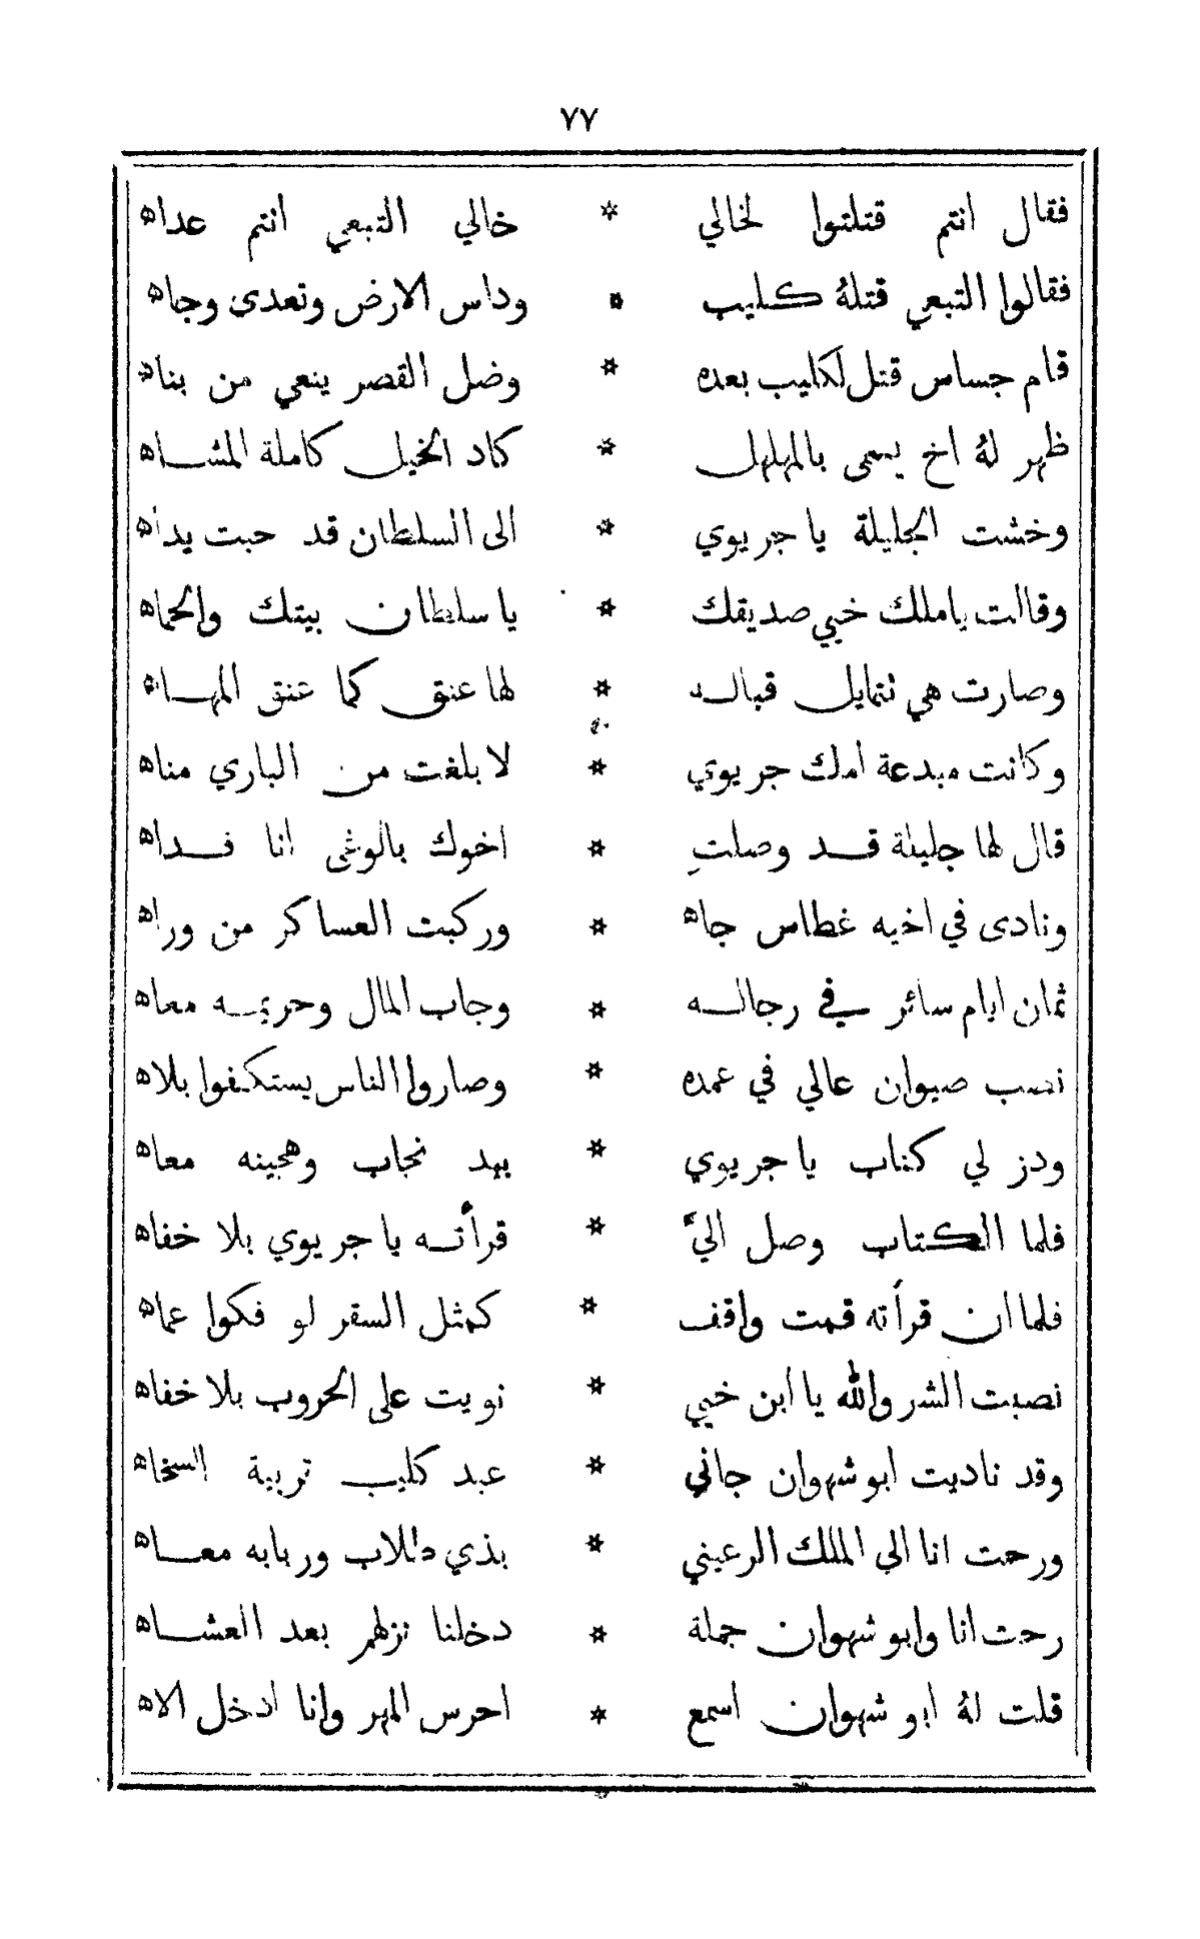 ٧٧
فقال انتم قتلتوا لخالي * خالي التبعي انتم عداه
فقالوا التبعي قتلهُ كليب * وداس الارض وتعدى وجاه
قام جساس قتل لكليب بعده * وضل القصر ينعي من بناه
ظهر لهُ اخ يسمى بالمهلهل * كاد الخيل كاملة المشاه
وخشت الجليلة يا جريوي * الى السلطان قد حبت يداه
وقالت ياملك خيي صديقك * يا سلطان بيتك والحماه
وصارت هي تتمايل قباله * لها عنق كما عنق المهاه
وكانت مبدعة امك جريوي * لا بلغت من الباري مناه
قال لها جليلة قد وصلتِ * اخوك بالوغى انا فداه
ونادى في اخيه غطاس جاه * وركبت العساكر من وراه
ثمان ايام سائر في رجاله * وجاب المال وحريمه معاه
نصب صيوان عالي في عمده * وصاروا الناس يستكفوا بلاه
ودز لي كتاب يا جريوي * بيد نجاب وهجينه معاه
فلما الكتاب وصل اليَّ * قرأته يا جريوي بلا خفاه
فلما ان قرأته قمت واقف * كمثل السقر لو فكوا عماه
نصبت الشر والله يا ابن خيي * نويت على الحروب بلا خفاه
وقد ناديت ابو شهوان جاني * عبد كليب تربية السخاه
ورحت انا الى الملك الرعيني * بذي دللاب وربابه معاه
رحت انا وابو شهوان جملة * دخلنا نزلهم بعد العشاه
قلت لهُ ابو شهوان اسمع * احرس المهر وانا ادخل الاه